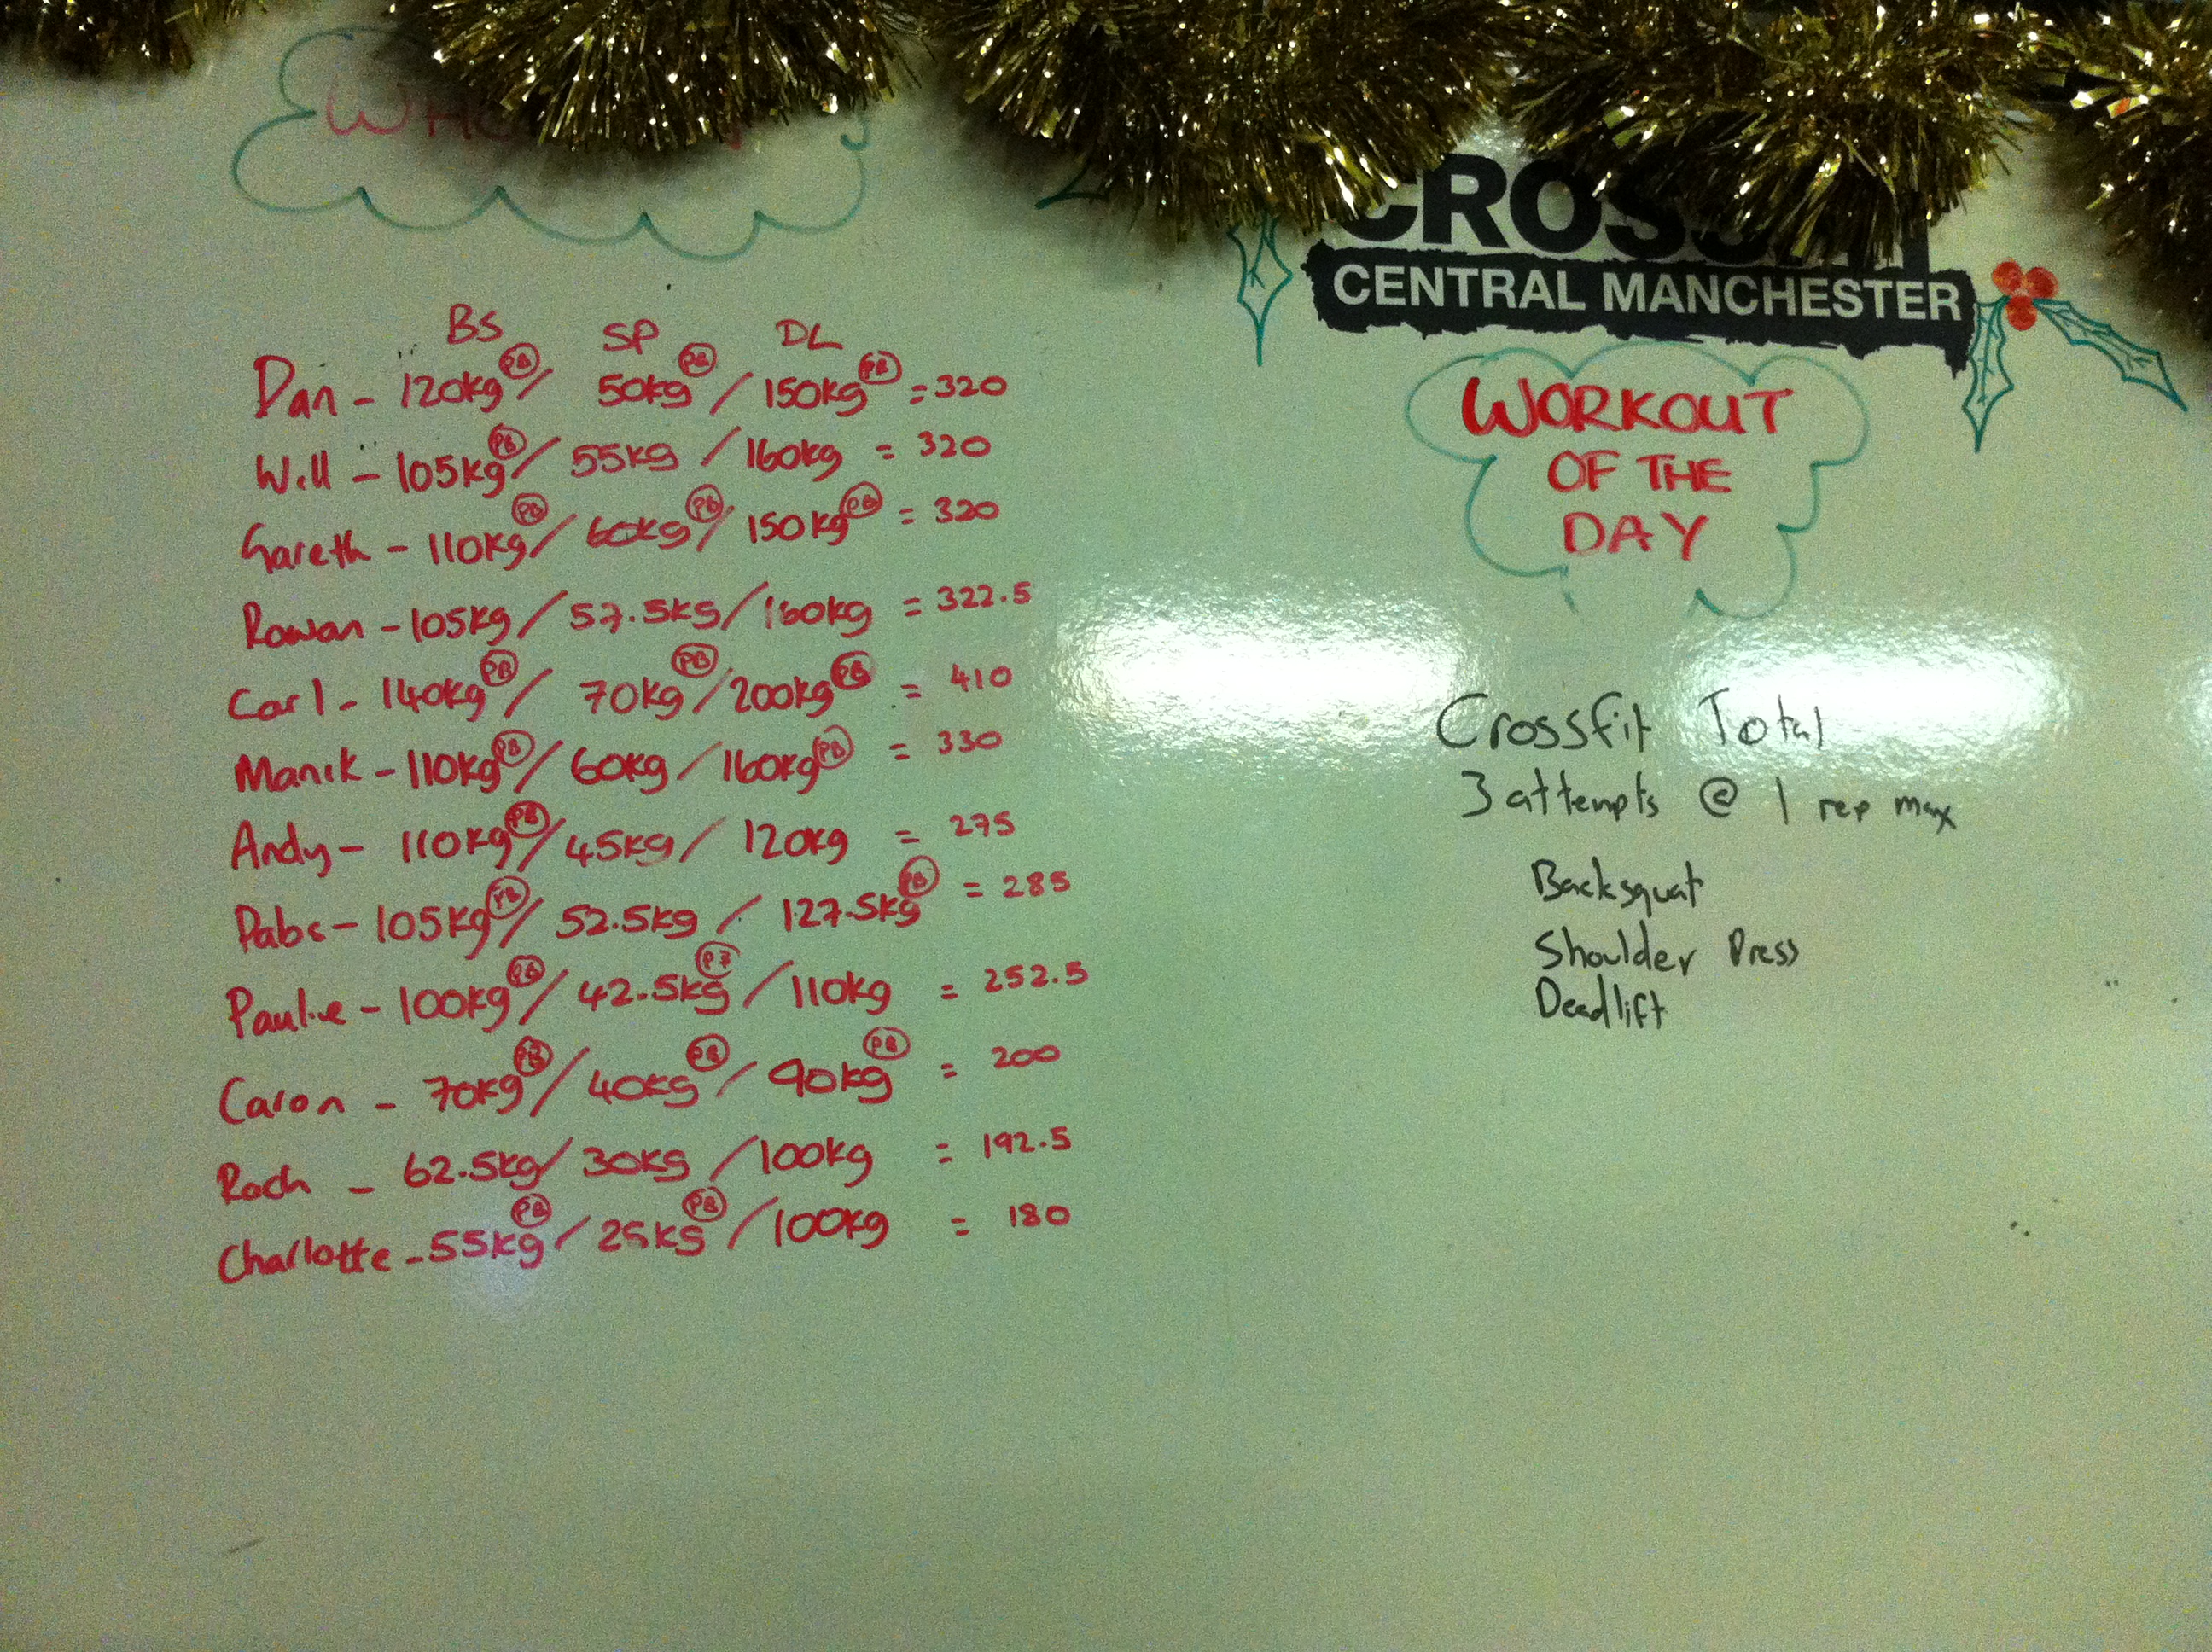 BS SP DL
Dan - 120kg PB / 50kg PB / 150kg PB = 320
Will - 105kg PB / 55kg / 160kg = 320
Gareth - 110kg PB / 60kg PB / 150kg PB = 320
Rowan - 105kg / 57.5kg / 160kg = 322.5
Carl - 140kg PB / 70kg PB / 200kg PB = 410
Manik - 110kg PB / 60kg / 160kg PB = 330
Andy - 110kg PB / 45kg / 120kg = 275
Pabs - 105kg PB / 52.5kg / 127.5kg PB = 285
Paulie - 100kg PB / 42.5kg PB / 110kg = 252.5
Caron - 70kg PB / 40kg PB / 90kg PB = 200
Rach - 62.5kg / 30kg / 100kg = 192.5
Charlotte - 55kg PB / 25kg PB / 100kg = 180
CROSSFIT
CENTRAL MANCHESTER
WORKOUT
OF THE
DAY
Crossfit Total
3 attempts @ 1 rep max
Backsquat
Shoulder Press
Deadlift